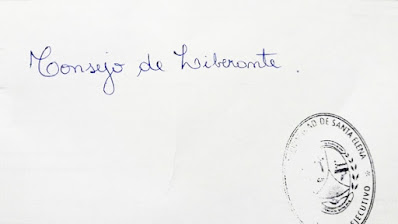 Consejo de Liberante.
DAD DE SANTA ELENA
EJECUTIVO